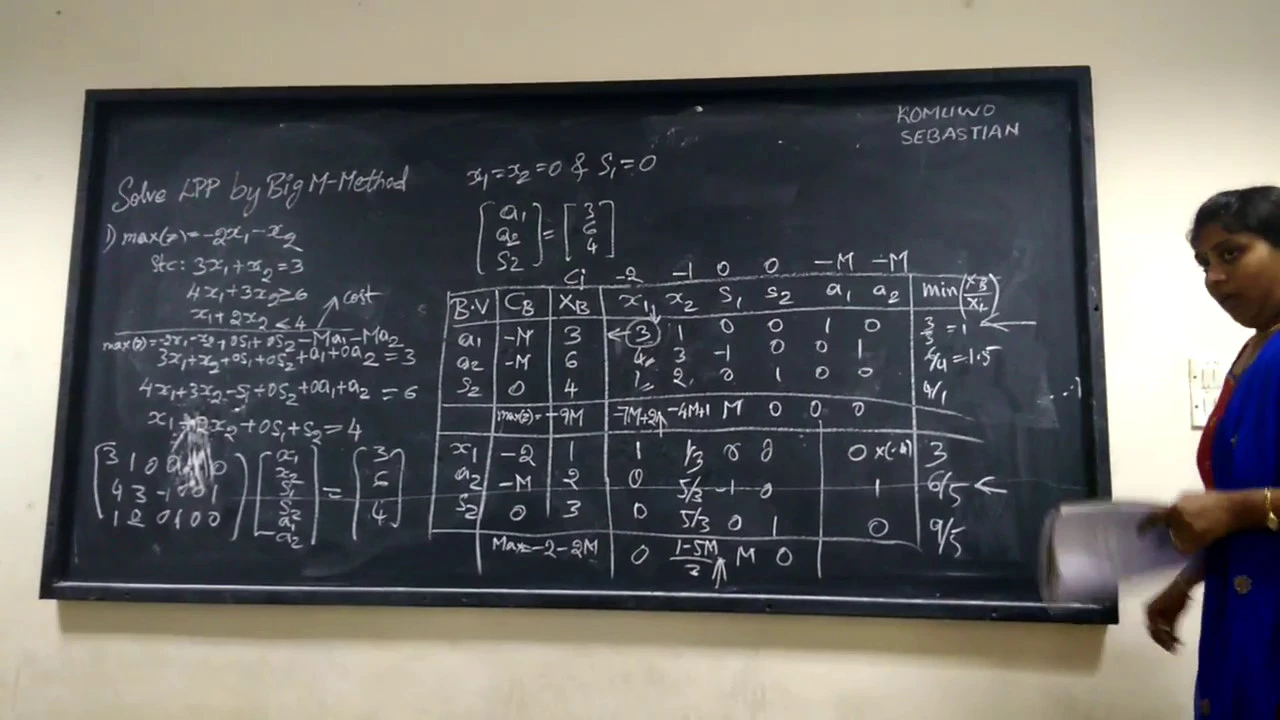 KOMUWO
SEBASTIAN
Solve LPP by Big M-Method
1) max(z) = -2x₁ - x₂
Stc: 3x₁ + x₂ = 3
4x₁ + 3x₂ ≥ 6
x₁ + 2x₂ < 4
cost
max(z) = -2x₁ - x₂ + 0S₁ + 0S₂ - Ma₁ - Ma₂
3x₁ + x₂ + 0S₁ + 0S₂ + a₁ + 0a₂ = 3
4x₁ + 3x₂ - S₁ + 0S₂ + 0a₁ + a₂ = 6
x₁ + 2x₂ + 0S₁ + S₂ = 4
3 1 0 0 0 x₁ 3
4 3 -1 0 0 1 x₂ S₁ = 6
1 2 0 1 0 0 S₂ a₁ a₂ 4
x₁ = x₂ = 0 & S₁ = 0
a₁ 3
a₂ = 6
S₂ 4
Cj -2 -1 0 0 -M -M
B.V C_B X_B x₁ x₂ S₁ S₂ a₁ a₂ min(X_B/X₁)
a₁ -M 3 3 1 0 0 1 0 3/3 = 1
a₂ -M 6 4 3 -1 0 0 1 6/4 = 1.5
S₂ 0 4 1 2 0 1 0 0 4/1
max(z) = -9M -7M+2 -4M+1 M 0 0 0
x₁ -2 1 1 1/3 0 0 0 ×(-4) 3
a₂ -M 2 0 5/3 -1 0 1 6/5
S₂ 0 3 0 5/3 0 1 0 9/5
Max = -2 - 2M 0 1-5M/3 M 0